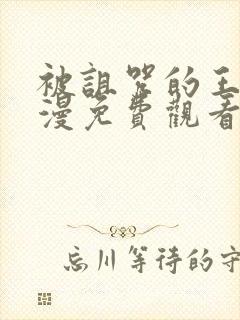 被詛咒的王
漫免費觀看
忘川等待的守